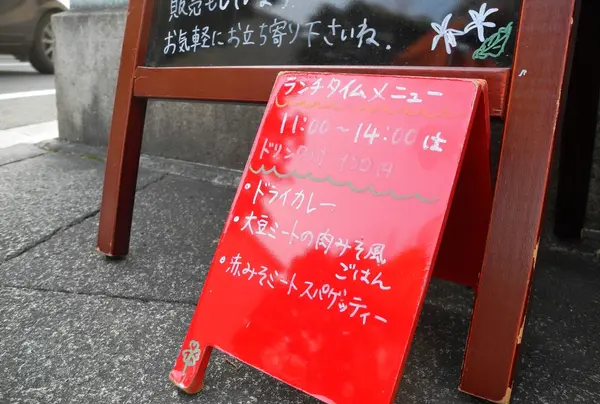 販売もしています
お気軽にお立ち寄り下さいね。
ランチタイムメニュー
11:00~14:00は
ドリンク
・ドライカレー
・大豆ミートの肉みそ風
ごはん
・赤みそミートスパゲッティー